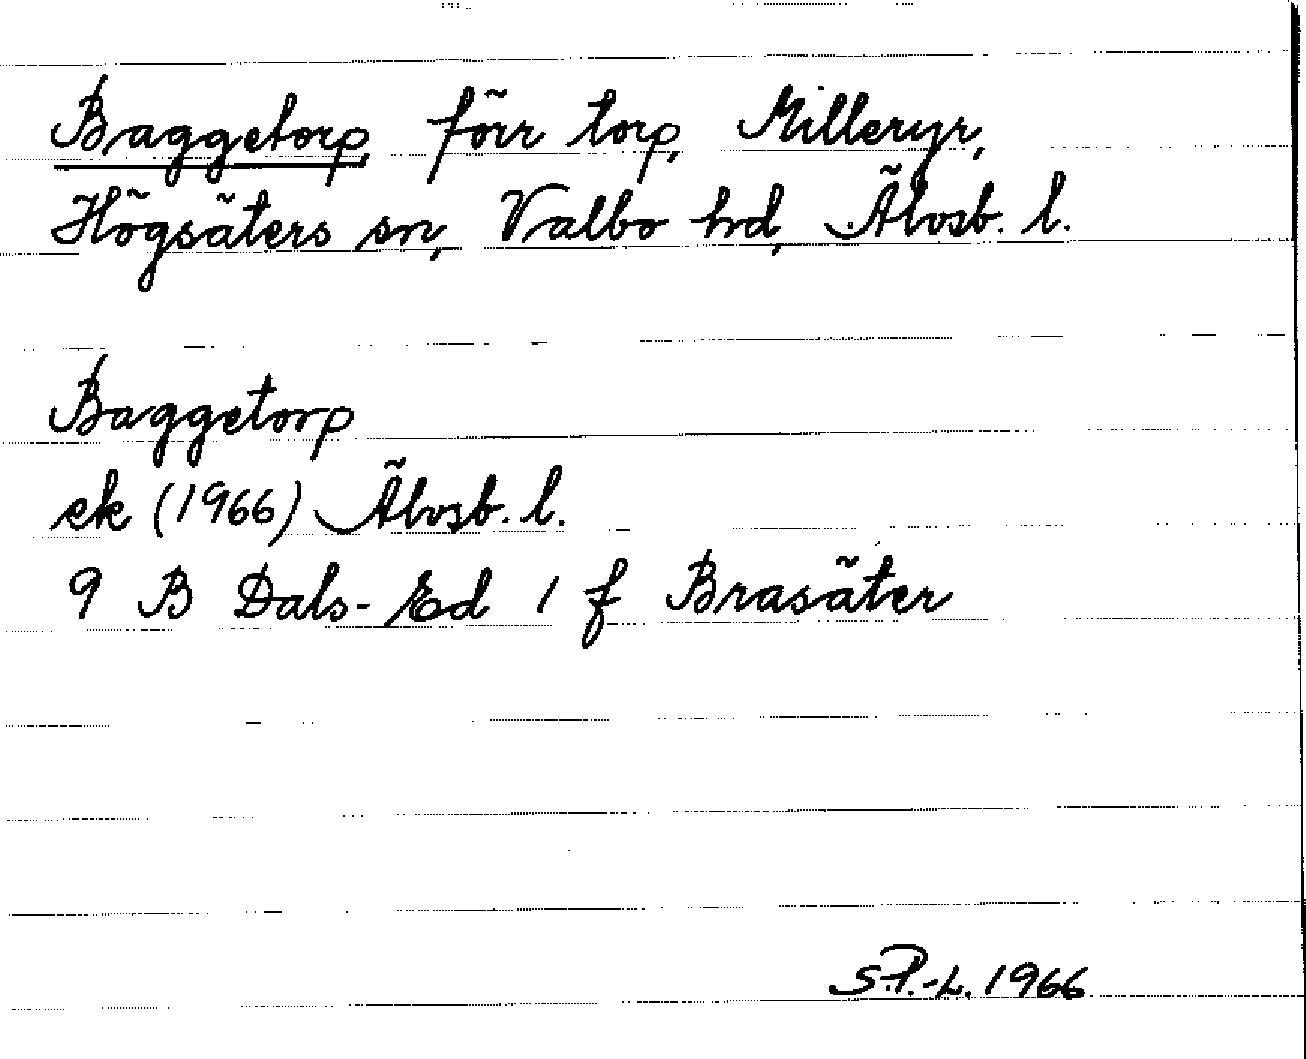 Baggetorp, förr torp, Milleryr,
Högsäters sn, Valbo hd, Älvsb. l.
Baggetorp
ek (1966) Älvsb. l.
9 B Dals-Ed 1 f Brasäter
S.P.-L. 1966